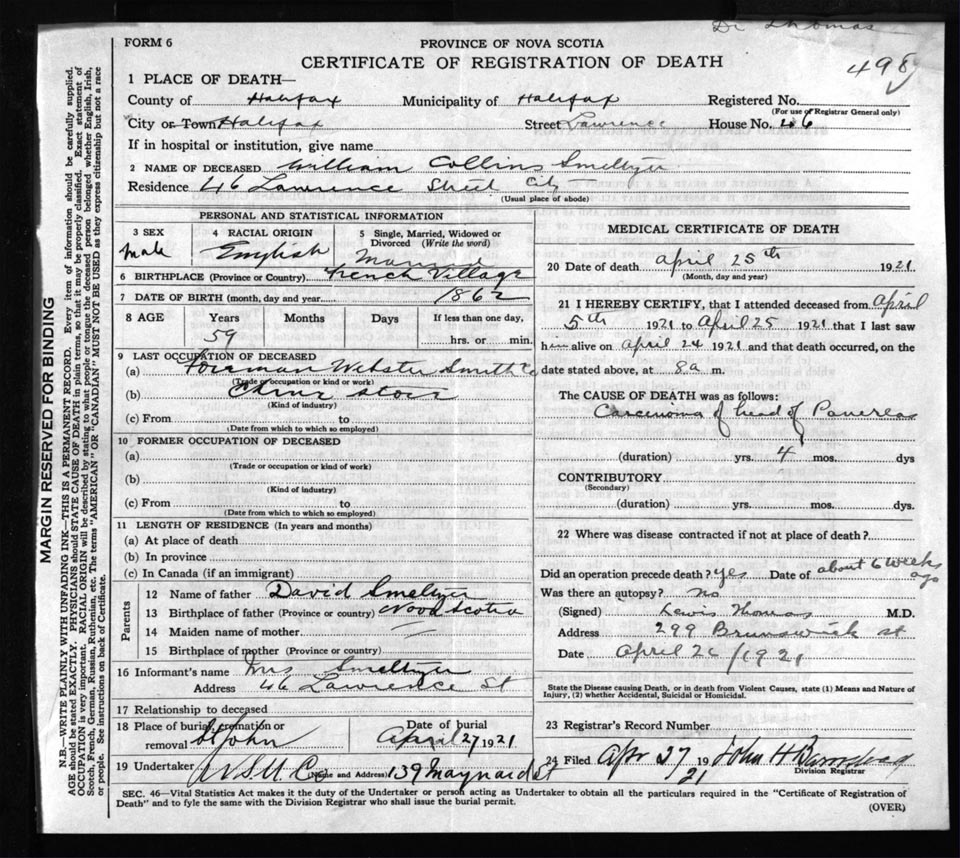 Dr Thomas
FORM 6
PROVINCE OF NOVA SCOTIA
CERTIFICATE OF REGISTRATION OF DEATH
498
1 PLACE OF DEATH—
County of Halifax Municipality of Halifax Registered No.
(For use of Registrar General only)
City or Town Halifax Street Lawrence House No.
If in hospital or institution, give name
2 NAME OF DECEASED William Collins Smeltzer
Residence 46 Lawrence Street City
(Usual place of abode)
PERSONAL AND STATISTICAL INFORMATION
3 SEX
male
4 RACIAL ORIGIN
English
5 Single, Married, Widowed or Divorced (Write the word)
Married
6 BIRTHPLACE (Province or Country) French Village
7 DATE OF BIRTH (month, day and year) 1862
8 AGE Years Months Days If less than one day,
59 hrs. or min.
9 LAST OCCUPATION OF DECEASED
(a) Foreman Webster Smith Co
(Trade or occupation or kind or work)
(b) China store
(Kind of industry)
(c) From to
(Date from which to which so employed)
10 FORMER OCCUPATION OF DECEASED
(a)
(Trade or occupation or kind of work)
(b)
(Kind of industry)
(c) From to
(Date from which to which so employed)
11 LENGTH OF RESIDENCE (In years and months)
(a) At place of death
(b) In province
(c) In Canada (if an immigrant)
Parents
12 Name of father David Smeltzer
13 Birthplace of father (Province or country) Nova Scotia
14 Maiden name of mother
15 Birthplace of mother (Province or country)
16 Informant's name Mrs Smeltzer
Address 46 Lawrence St
17 Relationship to deceased
18 Place of burial, cremation or removal St John
Date of burial
April 27 1921
19 Undertaker N S U Co (Name and Address) 139 Maynard st
MEDICAL CERTIFICATE OF DEATH
20 Date of death April 25th 1921
(Month, day and year)
21 I HEREBY CERTIFY, that I attended deceased from April
5th 1921 to April 25 1921 that I last saw
him alive on April 24 1921 and that death occurred, on the
date stated above, at 8a m.
The CAUSE OF DEATH was as follows:
Carcinoma of head of Pancreas
(duration) yrs. 4 mos. dys
CONTRIBUTORY
(Secondary)
(duration) yrs. mos. dys.
22 Where was disease contracted if not at place of death?
Did an operation precede death? yes Date of about 6 weeks ago
Was there an autopsy? no
(Signed) Lewis Thomas M.D.
Address 299 Brunswick st
Date April 26/1921
State the Disease causing Death, or in death from Violent Causes, state (1) Means and Nature of
Injury, (2) whether Accidental, Suicidal or Homicidal.
23 Registrar's Record Number
24 Filed Apr 27 1921 John H
Division Registrar
SEC. 46—Vital Statistics Act makes it the duty of the Undertaker or person acting as Undertaker to obtain all the particulars required in the "Certificate of Registration of
Death" and to fyle the same with the Division Registrar who shall issue the burial permit.
(OVER)
MARGIN RESERVED FOR BINDING
N.B.—WRITE PLAINLY WITH UNFADING INK—THIS IS A PERMANENT RECORD. Every item of information should be carefully supplied.
AGE should be stated EXACTLY. PHYSICIANS should STATE CAUSE OF DEATH in plain terms, so that it may be properly classified. Exact statement of
OCCUPATION is very important. RACIAL ORIGIN will be described by stating to what people or tongue the deceased person belonged, whether English, Irish,
Scotch, French, German, Russian, Ruthenian, etc. The terms "AMERICAN" OR "CANADIAN" MUST NOT BE USED as they express citizenship but not a race
or people. See instructions on back of Certificate.